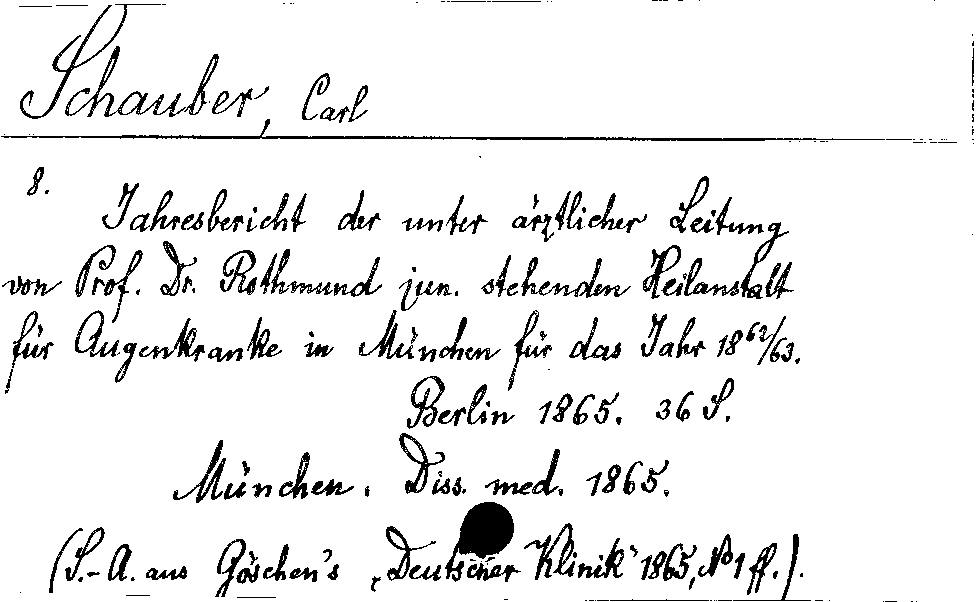 Schauber, Carl
8.
Jahresbericht der unter ärztlicher Leitung
von Prof. Dr. Rothmund jun. stehenden Heilanstalt
für Augenkranke in München für das Jahr 1862/63.
Berlin 1865. 36 S.
München. Diss. med. 1865.
(S.-A. aus Göschen's „Deutscher Klinik" 1865, No 1 ff.).